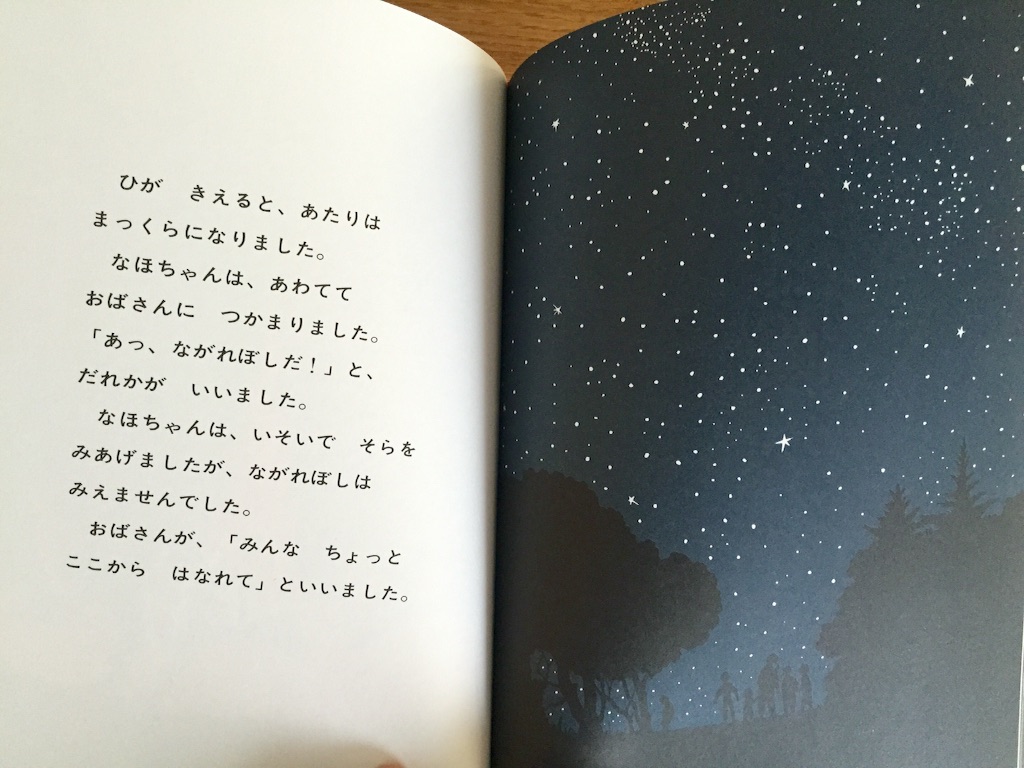 ひが　きえると、あたりは
まっくらになりました。
　なほちゃんは、あわてて
おばさんに　つかまりました。
「あっ、ながれぼしだ！」と、
だれかが　いいました。
　なほちゃんは、いそいで　そらを
みあげましたが、ながれぼしは
みえませんでした。
　おばさんが、「みんな　ちょっと
ここから　はなれて」といいました。